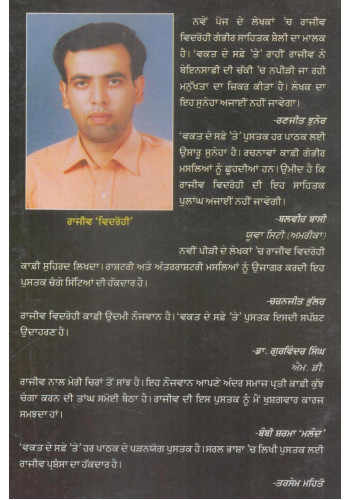 ਨਵੇਂ ਪੋਜ ਦੇ ਲੇਖਕਾਂ 'ਚ ਰਾਜੀਵ
ਵਿਦਰੋਹੀ ਗੰਭੀਰ ਸਾਹਿਤਕ ਸ਼ੈਲੀ ਦਾ ਮਾਲਕ
ਹੈ। 'ਵਕਤ ਦੇ ਸਫ਼ੇ 'ਤੇ' ਰਾਹੀਂ ਰਾਜੀਵ ਨੇ
ਬੇਇਨਸਾਫ਼ੀ ਦੀ ਚੱਕੀ 'ਚ ਨਪੀੜੀ ਜਾ ਰਹੀ
ਮਨੁੱਖਤਾ ਦਾ ਜ਼ਿਕਰ ਕੀਤਾ ਹੈ। ਲੇਖਕ ਦਾ
ਇਹ ਸੁਨੇਹਾ ਅਜਾਈਂ ਨਹੀਂ ਜਾਵੇਗਾ।
-ਰਣਜੀਤ ਝੁਨੇਰ
'ਵਕਤ ਦੇ ਸਫ਼ੇ 'ਤੇ' ਪੁਸਤਕ ਹਰ ਪਾਠਕ ਲਈ
ਉਸਾਰੂ ਸੁਨੇਹਾ ਹੈ। ਰਚਨਾਵਾਂ ਕਾਫ਼ੀ ਗੰਭੀਰ
ਮਸਲਿਆਂ ਨੂੰ ਛੂਹਦੀਆਂ ਹਨ। ਉਮੀਦ ਹੈ ਕਿ
ਰਾਜੀਵ ਵਿਦਰੋਹੀ ਦੀ ਇਹ ਸਾਹਿਤਕ
ਪੁਲਾਂਘ ਅਜਾਈਂ ਨਹੀਂ ਜਾਵੇਗੀ।
-ਬਲਵੀਰ ਬਾਸੀ
ਯੂਵਾ ਸਿਟੀ (ਅਮਰੀਕਾ)
ਰਾਜੀਵ 'ਵਿਦਰੋਹੀ'
ਨਵੀਂ ਪੀੜੀ ਦੇ ਲੇਖਕਾਂ 'ਚ ਰਾਜੀਵ ਵਿਦਰੋਹੀ
ਕਾਫ਼ੀ ਸੁਹਿਰਦ ਲਿਖਦਾ। ਰਾਸ਼ਟਰੀ ਅਤੇ ਅੰਤਰਰਾਸ਼ਟਰੀ ਮਸਲਿਆਂ ਨੂੰ ਉਜਾਗਰ ਕਰਦੀ ਇਹ
ਪੁਸਤਕ ਚੰਗੇ ਸਿੱਟਿਆਂ ਦੀ ਹੱਕਦਾਰ ਹੈ।
-ਚਰਨਜੀਤ ਭੁੱਲਰ
ਰਾਜੀਵ ਵਿਦਰੋਹੀ ਕਾਫ਼ੀ ਉਦਮੀ ਨੌਜਵਾਨ ਹੈ। 'ਵਕਤ ਦੇ ਸਫ਼ੇ 'ਤੇ' ਪੁਸਤਕ ਇਸਦੀ ਸਪੱਸ਼ਟ
ਉਦਾਹਰਣ ਹੈ।
-ਡਾ. ਗੁਰਵਿੰਦਰ ਸਿੰਘ
ਐਮ. ਡੀ.
ਰਾਜੀਵ ਨਾਲ ਮੇਰੀ ਚਿਰਾਂ ਤੋਂ ਸਾਂਝ ਹੈ। ਇਹ ਨੌਜਵਾਨ ਆਪਣੇ ਅੰਦਰ ਸਮਾਜ ਪ੍ਰਤੀ ਕਾਫ਼ੀ ਕੁੱਝ
ਚੰਗਾ ਕਰਨ ਦੀ ਤਾਂਘ ਸਮੋਈ ਬੈਠਾ ਹੈ। ਰਾਜੀਵ ਦੀ ਇਸ ਪੁਸਤਕ ਨੂੰ ਮੈਂ ਖੁਸ਼ਗਵਾਰ ਕਾਰਜ
ਸਮਝਦਾ ਹਾਂ।
-ਬੌਬੀ ਸ਼ਰਮਾ 'ਮਲੌਦ'
'ਵਕਤ ਦੇ ਸਫ਼ੇ 'ਤੇ' ਹਰ ਪਾਠਕ ਦੇ ਪੜਨਯੋਗ ਪੁਸਤਕ ਹੈ। ਸਰਲ ਭਾਸ਼ਾ 'ਚ ਲਿਖੀ ਪੁਸਤਕ ਲਈ
ਰਾਜੀਵ ਪ੍ਰਸ਼ੰਸਾ ਦਾ ਹੱਕਦਾਰ ਹੈ।
-ਤਰਸੇਮ ਮਹਿਤੋ